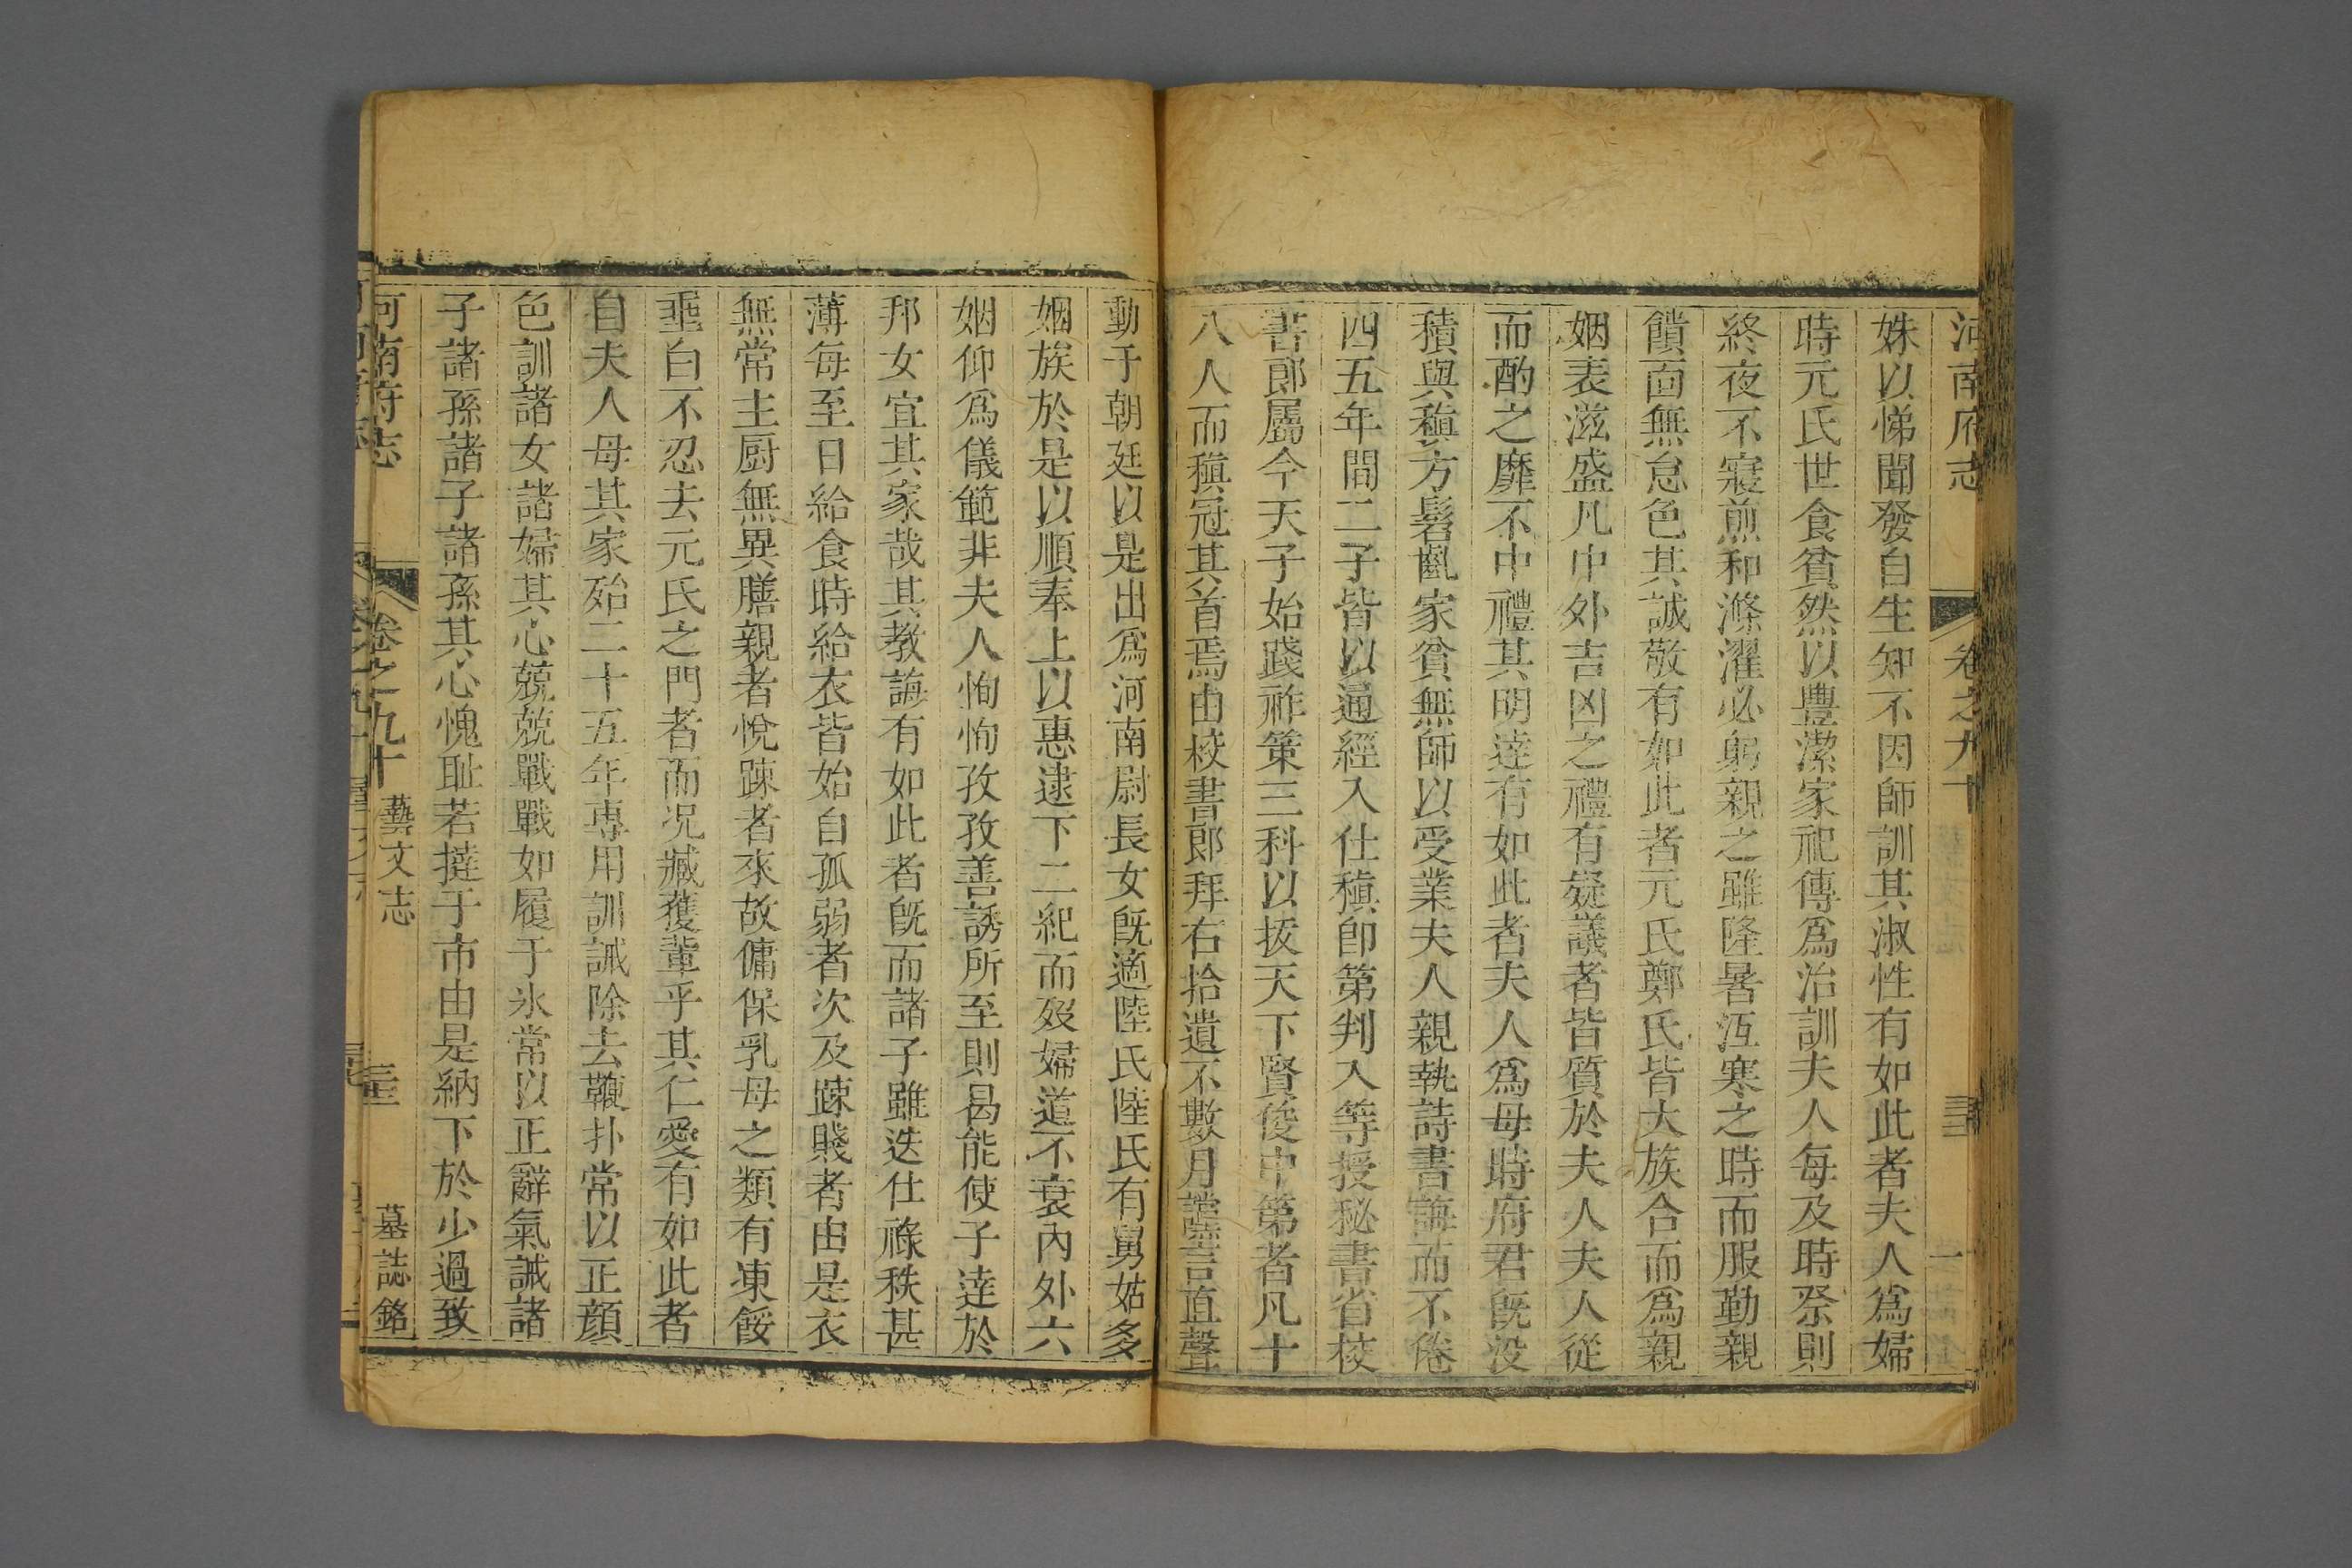 河南府志 卷之九十 三
姝以悌聞發自生知不因師訓其淑性有如此者夫人爲婦
時元氏世食貧然以豐潔家祀傳爲治訓夫人每及時祭則
終夜不寢煎和滌濯必躬親之雖隆暑沍寒之時而服勤親
饋面無怠色其誠敬有如此者元氏鄭氏皆大族合而爲親
姻表滋盛凡中外吉凶之禮有疑議者皆質於夫人夫人從
而酌之靡不中禮其明達有如此者夫人爲母時府君旣没
積與稹方髫齓家貧無師以受業夫人親執詩書誨而不倦
四五年間二子皆以通經入仕稹卽第判入等授秘書省校
書郎屬今天子始踐祚策三科以拔天下賢俊中第者凡十
八人而稹冠其首焉由校書郎拜右拾遺不數月讜言直聲
動于朝廷以是出爲河南尉長女旣適陸氏陸氏有舅姑多
姻族於是以順奉上以惠逮下二紀而歿婦道不衰內外六
姻仰爲儀範非夫人恂恂孜孜善誘所至則曷能使子達於
邦女宜其家哉其教誨有如此者旣而諸子雖迭仕祿秩甚
薄每至日給食時給衣皆始自孤弱者次及疎賤者由是衣
無常主厨無異膳親者悅踈者來故傭保乳母之類有凍餒
垂白不忍去元氏之門者而况臧獲輩乎其仁愛有如此者
自夫人母其家殆二十五年專用訓誡除去鞭扑常以正顔
色訓諸女諸婦其心兢兢戰戰如履于氷常以正辭氣誡諸
子諸孫諸子諸孫其心愧耻若撻于市由是納下於少過致
河南府志 卷之九十 藝文志 三 墓誌銘